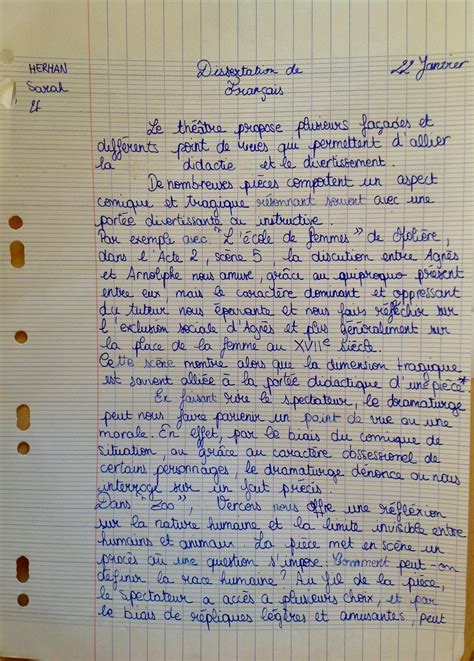 HERHAN
Sarah
Dissertation de
Français
22 Janvier
Le théâtre propose plusieurs façades et
différents point de vues qui permettent d'allier
la didactie et le divertissement.
De nombreuses pièces comportent un aspect
comique et tragique résonnant souvent avec une
portée divertissante ou instructive.
Par exemple avec "L'école de femmes" de Molière,
dans l'Acte 2, scène 5, la discution entre Agnès
et Arnolphe nous amuse, grâce au quiproquo présent
entre eux, mais le caractère dominant et oppressant
du tuteur nous épouvante et nous fais réfléchir sur
l'exclusion sociale d'Agnès et plus généralement sur
la place de la femme au XVIIe siècle.
Cette scène montre alors que la dimension tragique
est souvent alliée à la portée didactique d'une pièce.
En faisant rire le spectateur, le dramaturge
peut nous faire parvenir un point de vue ou une
morale. En effet, par le biais du comique de
situation, ou grâce au caractère obssessionel de
certains personnages, le dramaturge dénonce ou nous
interroge sur un fait précis.
Dans "Zoo", Vercors nous offre une réfléxion
sur la nature humaine et la limite invisible entre
humains et animaux. La pièce met en scène un
procès où une question s'impose: Comment peut-on
définir la race humaine? Au fil de la pièce,
le spectateur a accès a plusieurs choix, et par
le biais de répliques légères et amusantes, peut